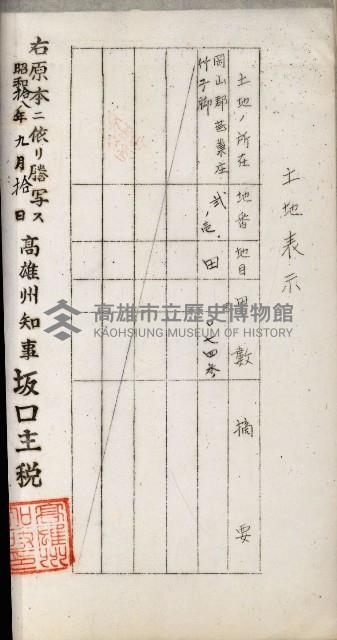 土地表示
土地ノ所在 地番 地目 甲數 摘要
岡山郡
竹子脚 弐ノ壱 田 〇七四参
右原本ニ依リ謄写ス
昭和拾八年九月拾日
高雄州知事 坂口主税
高雄市立歷史博物館
KAOHSIUNG MUSEUM OF HISTORY